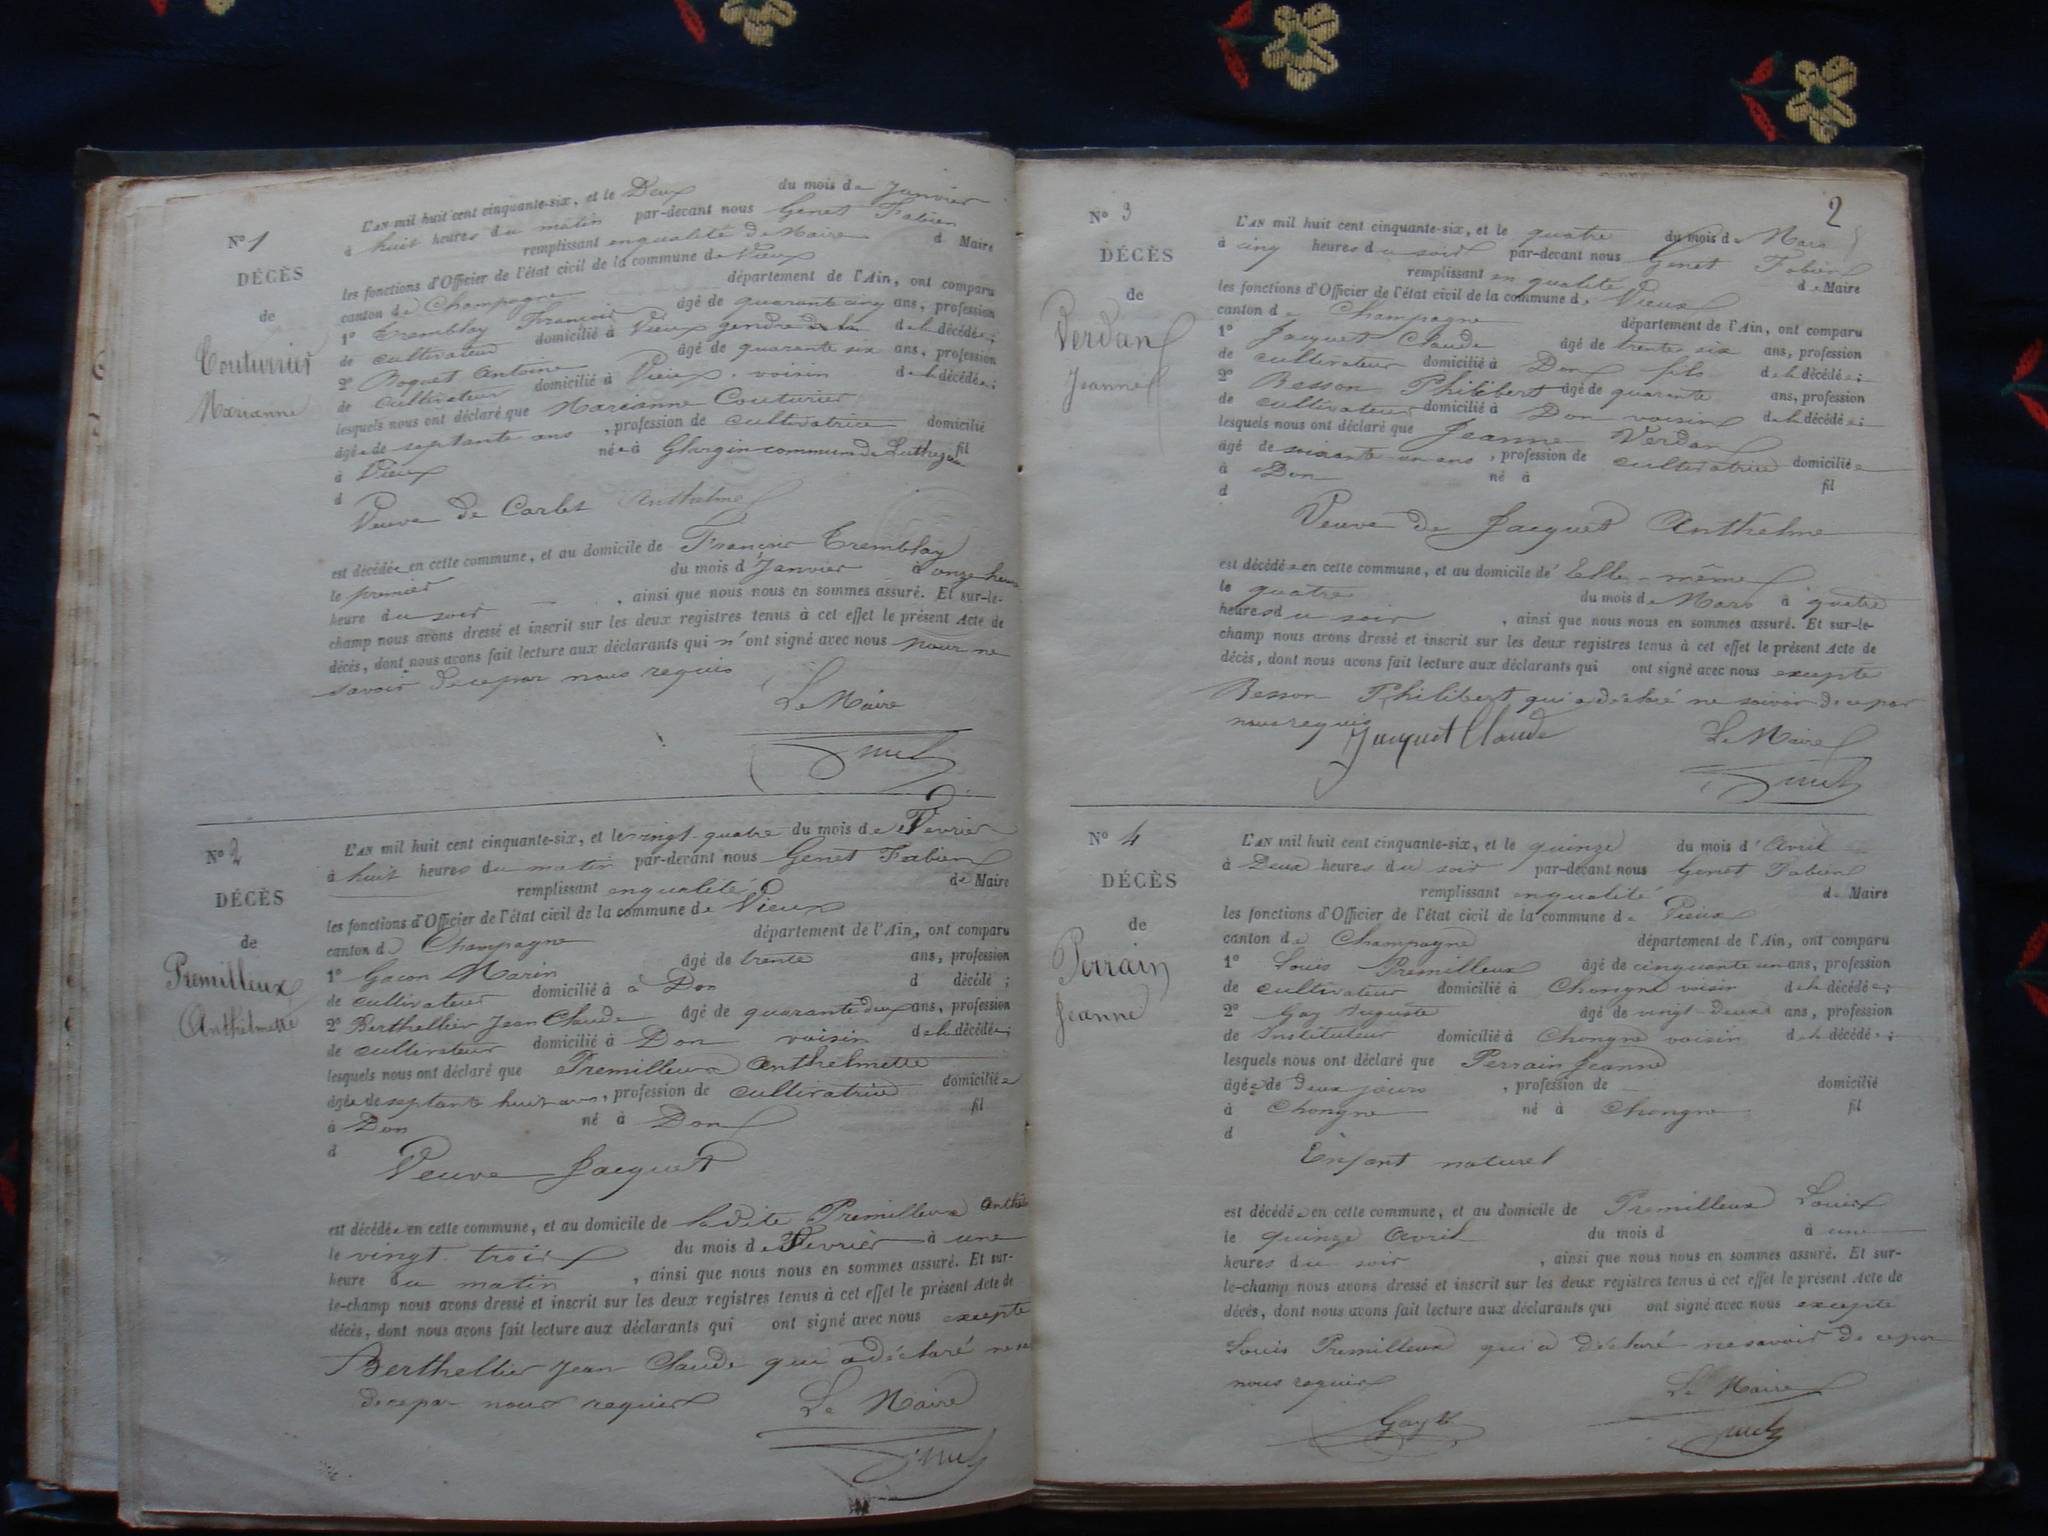 N° 1
DÉCÈS
de
Couturrier
Marianne
L'AN mil huit cent cinquante-six, et le Deux du mois de Janvier
à huit heures du matin par-devant nous Genet Fabien
remplissant enqualité de Maire d Maire
les fonctions d'Officier de l'état civil de la commune de Vieux
canton de Champagne département de l'Ain, ont comparu
1° Tremblay François âgé de quarante cinq ans, profession
de cultivateur domicilié à Vieux gendre de la de la décédée;
2° Boguet Antoine âgé de quarante six ans, profession
de cultivateur domicilié à Vieux voisin de la décédée;
lesquels nous ont déclaré que Marianne Couturier
âgée de septante ans, profession de cultivatrice domicilié
à Vieux née à commune de fil
d
Veuve de Carlet Anthelme
est décédée en cette commune, et au domicile de François Tremblay
le premier du mois d Janvier à onze heure
heure du soir, ainsi que nous nous en sommes assuré. Et sur-le-
champ nous avons dressé et inscrit sur les deux registres tenus à cet effet le présent Acte de
décès, dont nous avons fait lecture aux déclarants qui n'ont signé avec nous pour ne
savoir de ce par nous requis
Le Maire
N° 2
DÉCÈS
de
Premilleux
Anthelmette
L'AN mil huit cent cinquante-six, et le vingt-quatre du mois de Fevrier
à huit heures du matin par-devant nous Genet Fabien
remplissant enqualité de Maire
les fonctions d'Officier de l'état civil de la commune de Vieux
canton de Champagne département de l'Ain, ont comparu
1° Gacon Marin âgé de trente ans, profession
de cultivateur domicilié à à Don d décédé;
2° Berthellier Jean Claude âgé de quarante deux ans, profession
de cultivateur domicilié à Don voisin de la décédée;
lesquels nous ont déclaré que Premilleux Anthelmette
âgée de septante huit ans, profession de cultivatrice domiciliée
à Don né à Don fil
d
Veuve Jacquet
est décédée en cette commune, et au domicile de ladite Premilleux Anthel
le vingt trois du mois de Fevrier à une
heure du matin, ainsi que nous nous en sommes assuré. Et sur-
le-champ nous avons dressé et inscrit sur les deux registres tenus à cet effet le présent Acte de
décès, dont nous avons fait lecture aux déclarants qui ont signé avec nous excepté
Berthellier Jean Claude qui a déclaré ne sa
de ce par nous requis
Le Maire
2
N° 3
DÉCÈS
de
Verdan
Jeanne
L'AN mil huit cent cinquante-six, et le quatre du mois de Mars
à cinq heures du soir par-devant nous Genet Fabien
remplissant en qualité de Maire
les fonctions d'Officier de l'état civil de la commune de Vieux
canton de Champagne département de l'Ain, ont comparu
1° Jacquet Claude âgé de trente six ans, profession
de cultivateur domicilié à Don fils de la décédée;
2° Besson Philibert âgé de quarante ans, profession
de cultivateur domicilié à Don voisin de la décédée;
lesquels nous ont déclaré que Jeanne Verdan
âgé de soixante-un ans, profession de cultivatrice domiciliée
à Don né à fil
d
Veuve de Jacquet Anthelme
est décédée en cette commune, et au domicile de Elle-même
le quatre du mois de Mars à quatre
heures du soir, ainsi que nous nous en sommes assuré. Et sur-le-
champ nous avons dressé et inscrit sur les deux registres tenus à cet effet le présent Acte de
décès, dont nous avons fait lecture aux déclarants qui ont signé avec nous excepté
Besson Philibert qui a déclaré ne savoir de ce par
nous requis
Jacquet Claude
Le Maire
N° 4
DÉCÈS
de
Perrain
Jeanne
L'AN mil huit cent cinquante-six, et le quinze du mois d'Avril
à Deux heures du soir par-devant nous Genet Fabien
remplissant enqualité de Maire
les fonctions d'Officier de l'état civil de la commune de Vieux
canton de Champagne département de l'Ain, ont comparu
1° Louis Premilleux âgé de cinquante un ans, profession
de cultivateur domicilié à Chongne voisin de la décédée;
2° Gay Auguste âgé de vingt-deux ans, profession
de Instituteur domicilié à Chongne voisin de la décédée;
lesquels nous ont déclaré que Perrain Jeanne
âgée de deux jours, profession de domicilié
à Chongne né à Chongne fil
d
Enfant naturel
est décédée en cette commune, et au domicile de Premilleux Louis
le quinze Avril du mois d à une
heures du soir, ainsi que nous nous en sommes assuré. Et sur-
le-champ nous avons dressé et inscrit sur les deux registres tenus à cet effet le présent Acte de
décès, dont nous avons fait lecture aux déclarants qui ont signé avec nous excepté
Louis Premilleux qui a déclaré ne savoir de ce par
nous requis
Le Maire
Gay